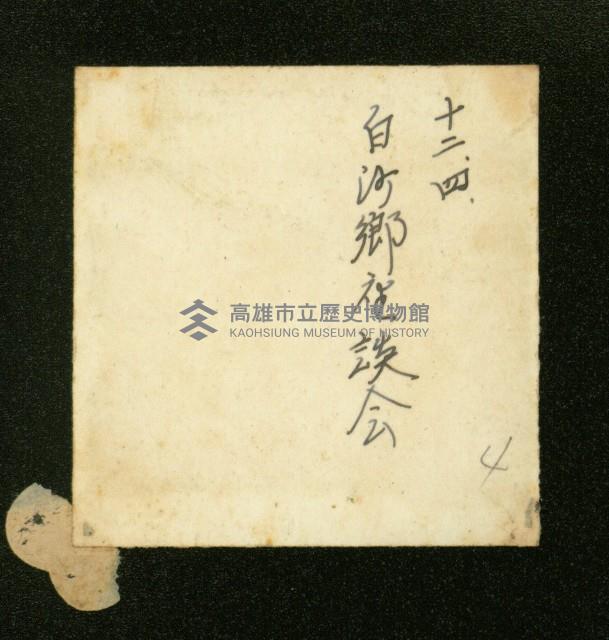 十二、四、
白沙鄉座談会
4
高雄市立歷史博物館
KAOHSIUNG MUSEUM OF HISTORY